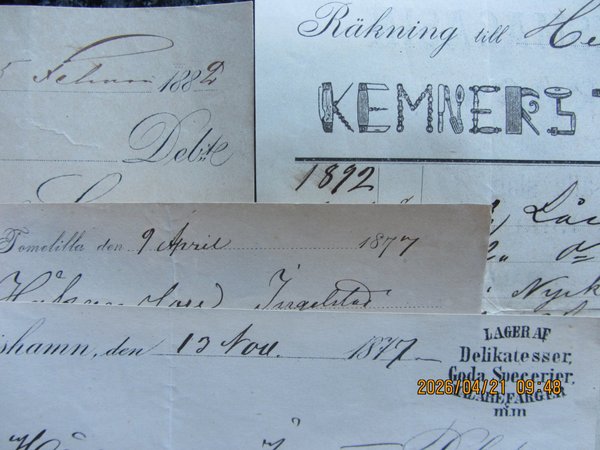 5 Februari 1882
Debet
Räkning till He
KEMNERS
1892
Tomelilla den 9 April 1877
Ingelstad
shamn, den 13 Nov. 1877
LAGER AF
Delikatesser,
Goda Specerier,
MÅLAREFÄRGER
m.m
2026/04/21 09:48